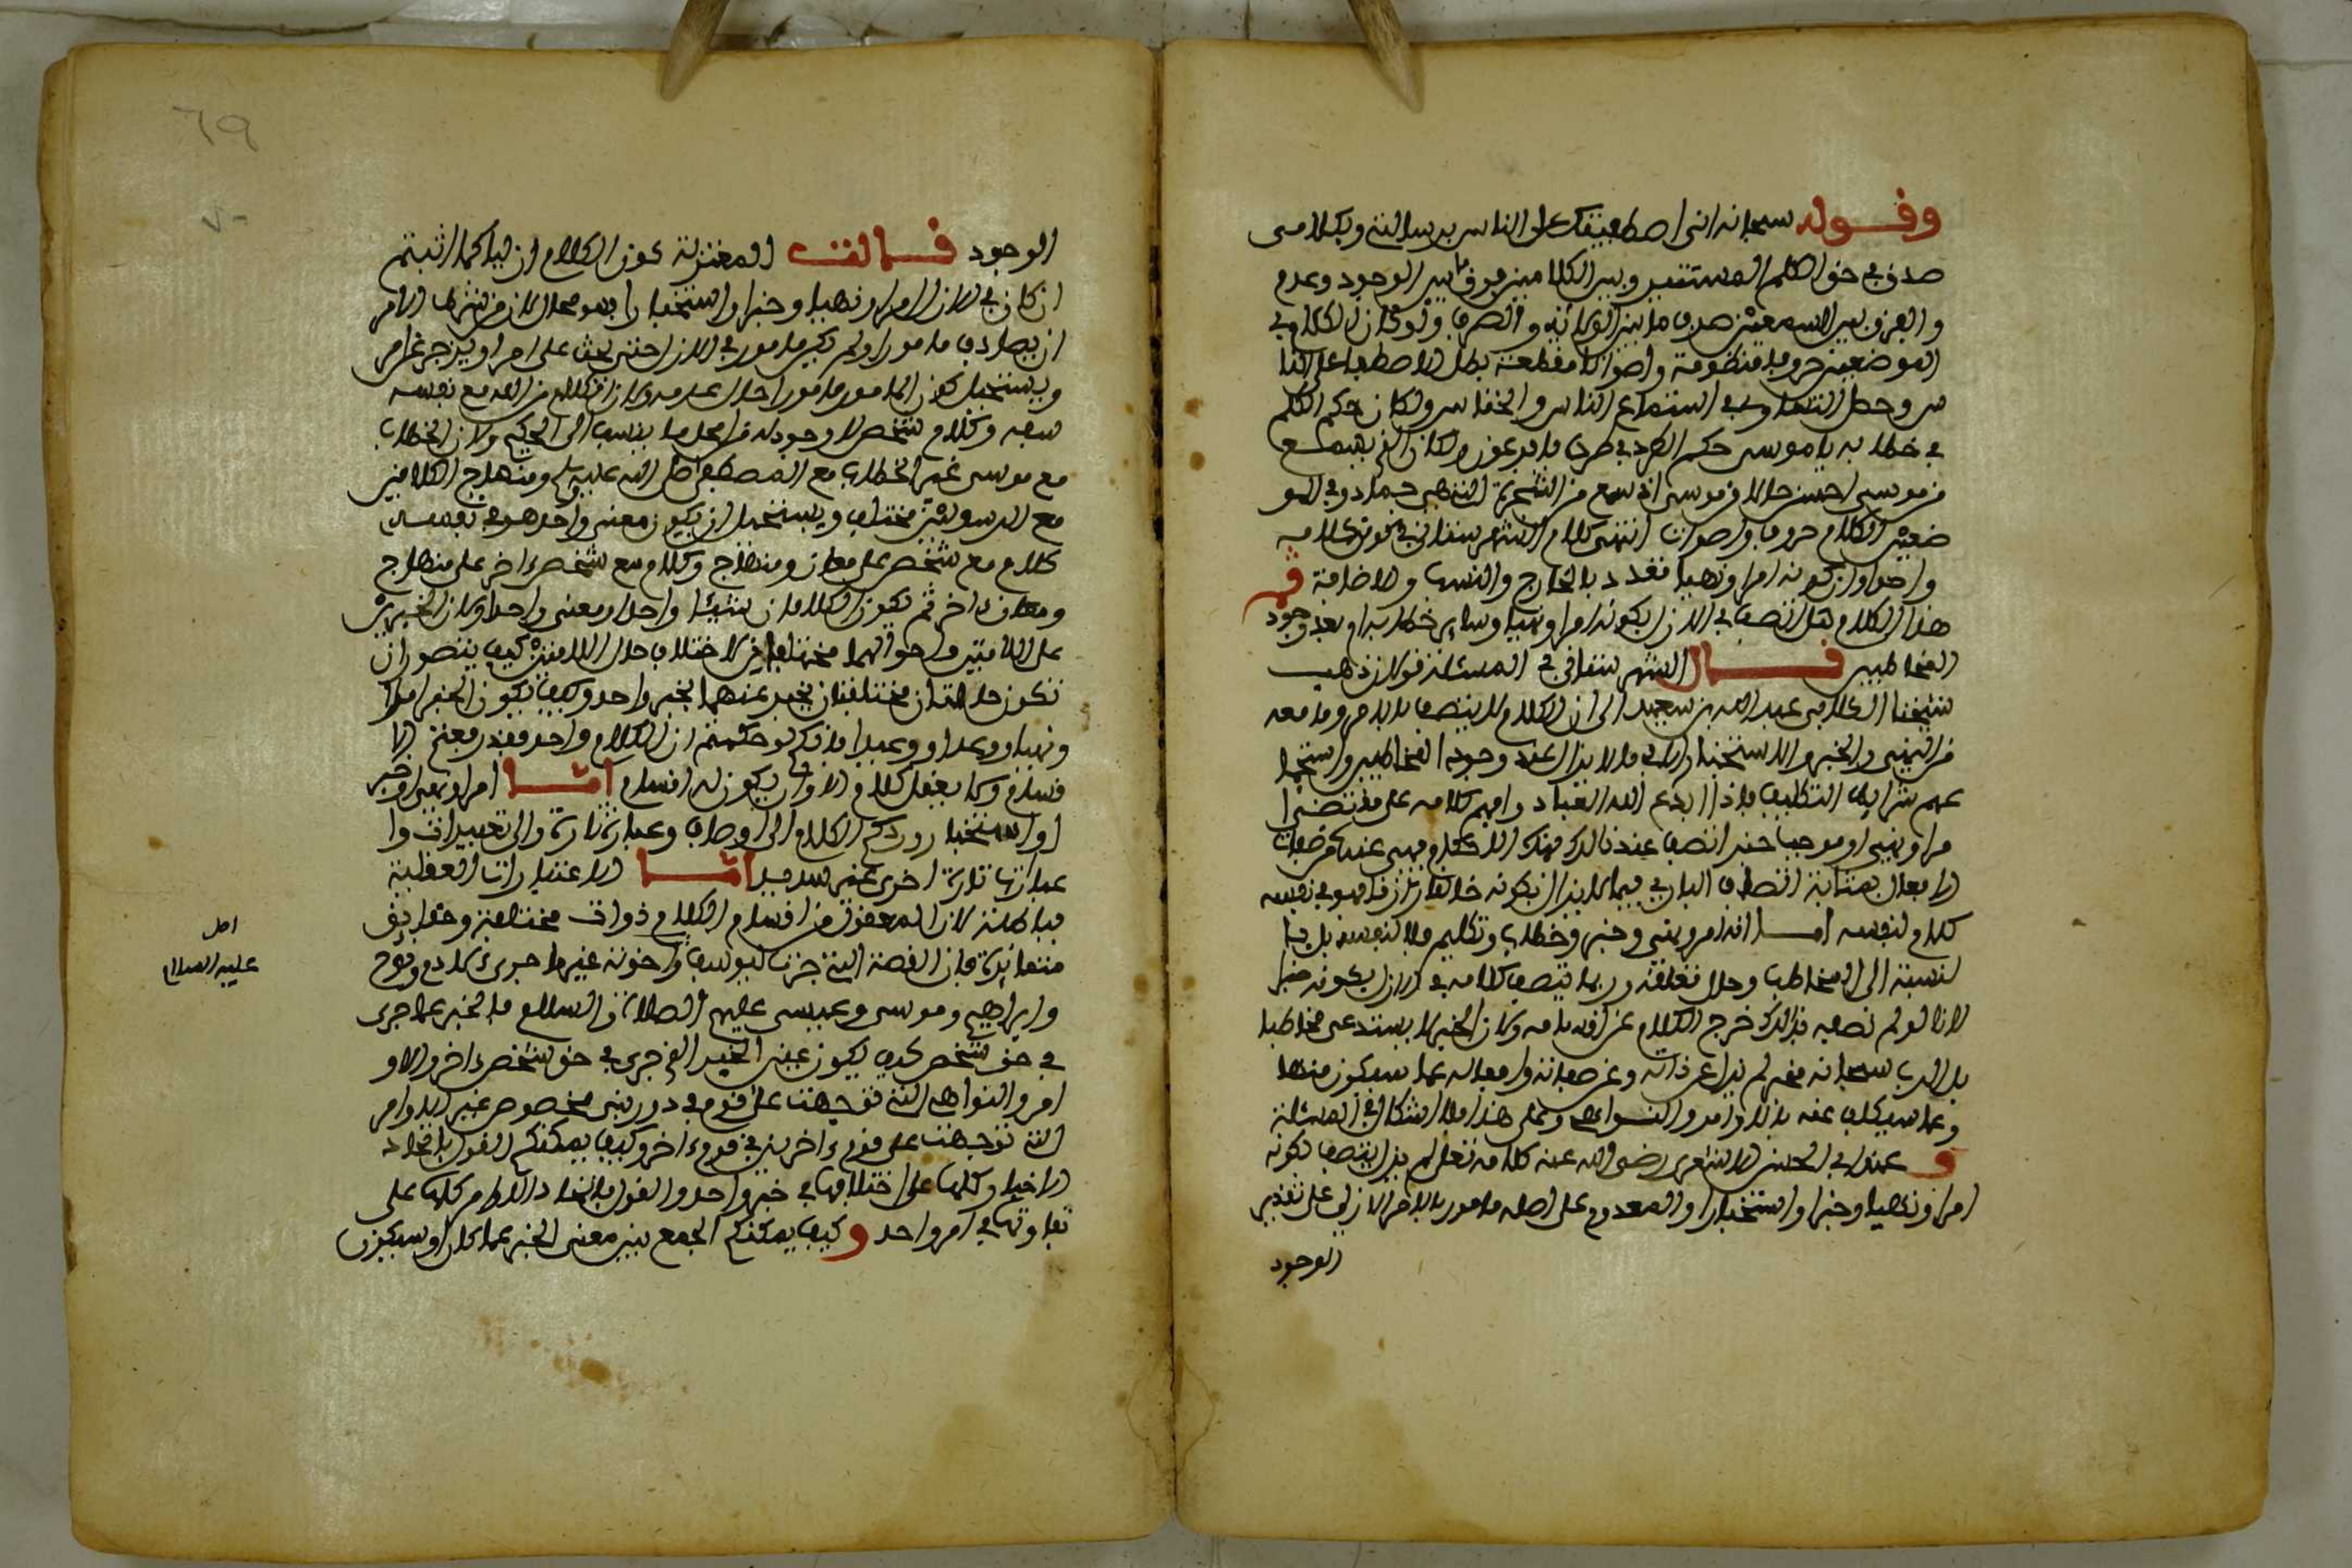 وقوله سبحانه انى اصطفيتك على الناس برسالتى وبكلامى
صدق فى حق المستنير وبين الكلامين فرق ما بين الوجود وعدم
والفرق بين السمعين صدق ما بين الولاية والصرف ولو كان الكلام فى
الموضعين حروفا منظومة واصواتا مقطعة بطل الاصطفا على النا
س وحصل التساوى فى استماع الناس والخناس ولكان حكم الكلم
فى خطابه يا موسى حكم الطرد فى طرف يا فرعون ولكان الذى يسمع
من موسى احسن حالا من موسى اذ سمع من الشجرة التى هى جماد وفى المو
ضعين الكلام حروف واصوات انتهى كلام الشهرستانى فى كلامه
واحدا وان كونه امرا ونهيا تعدد بالخارج والنسب والاضافة ثم
هذا الكلام هل اتصف فى الازل بكونه امرا ونهيا وساير خطابه ام بعد وجود
المخاطبين قال الشهرستانى فى المسئلة قولان ذهب
شيخنا الكلابى عبد الله بن سعيد الى ان الكلام لا يتصف بالامر وما معه
من النهى والخبر والاستخبار الا فى ما لا يزال عند وجود المخاطبين واستجما
عهم شرايط التكليف فاذا ابدع الله العباد وافهم كلامه على مقتضى ا
مر او نهى او موجب خبر اتصف عند ذالك بهذه الاحكام فهى عنده من صفات
الافعال بمثابة اتصاف البارى فيما لا يزال بكونه خالقا رازقا فهو فى نفسه
كلام لنفسه اما انه امر ونهى وخبر وخطاب وتكليم فلا لنفسه بل با
لنسبة الى المخاطب وحال تعلقه وربما يتصف كلامه فى الازل بكونه خبرا
لانا لو لم نصفه بذالك خرج الكلام عن اقسامه ولان الخبر لا يستدعى مخاطبا
بل الرب سبحانه مخبر لم يزل عن ذاته وعن صفاته وافعاله عما سيكون منها
وعما سيكلف عنه بالاوامر والنواهى وعلى هذا فلا اشكال فى المسئلة
وعند ابى الحسن الاشعرى رضى الله عنه كلامه تعلى لم يزل يتصف بكونه
امرا ونهيا وخبرا واستخبارا والمعدوم على اصله مامور بالامر الازلى على تقدير
الوجود
الوجود قالت المعتزلة كون الكلام ازليا كما اثبتم
ان كان فى الازل امرا ونهيا وخبرا واستخبارا فهو محال لان من شرط الامر
ان يصادف مامورا ولم يكن مامور فى الازل حتى يحث على امر او يزجر عن امر
ويستحيل كون المامور مامورا حال عدمه ولان الكلام من الله مع نفسه
سفه وكلام شخص لا وجود له من امحل ما ينسب الى الحكيم ولان الخطاب
مع موسى غير الخطاب مع المصطفى صلى الله عليه وسلم ومنهاج الكلامين
مع الرسولين مختلف ويستحيل ان يكون معنى واحد هو فى نفسه
كلام مع شخص على معان ومنهاج وكلام مع شخص ءاخر على منهاج
ومعان اخر ثم يكون الكلامان شيئا واحدا ومعنى واحدا ولان الخبرين
على الامتين واحوالهما مختلفان لاختلاف حال الامتين كيف يتصور ان
تكون حالتان مختلفتان يخبر عنهما بخبر واحد وكيف يكون الخبر امرا
ونهيا ووعدا ووعيدا فانكم لو حكمتم ان الكلام واحد فقد رفعتم الا
قسام ولا يعقل كلام الا وان يكون له اقسام امّا امر او نهى او خبر
او استخبار وردكم الكلام الى اوصاف وعبارة تارة والى تعبيرات وا
عبارات تارة اخرى غير سديد امّا الاعتبارات العقلية
فباطلة لان المعقول من اقسام الكلام ذوات مختلفة وحقايق
متغايرة فان القصة التى جرت ليوسف واخوته غير ما جرى لادم ونوح
وابراهيم وموسى وعيسى عليهم الصلاة والسلام فالخبر عما جرى
فى حق شخص كيف يكون عين الخبر الذى جرى فى حق شخص ءاخر والاو
امر والنواهى التى توجهت على قوم فى دور نبى مخصوص غير الاوامر
التى توجهت على قوم ءاخرين فى قوم ءاخر وكيف يمكنكم القول باتحاد
الاخبار كلها على اختلافها فى خبر واحد والقول باتحاد الاوامر كلها على
تفاوتها فى امر واحد وكيف يمكنكم الجمع بين معنى الخبر عما كان او سيكون
اصل
عليه السلام
٦٩
٧٠